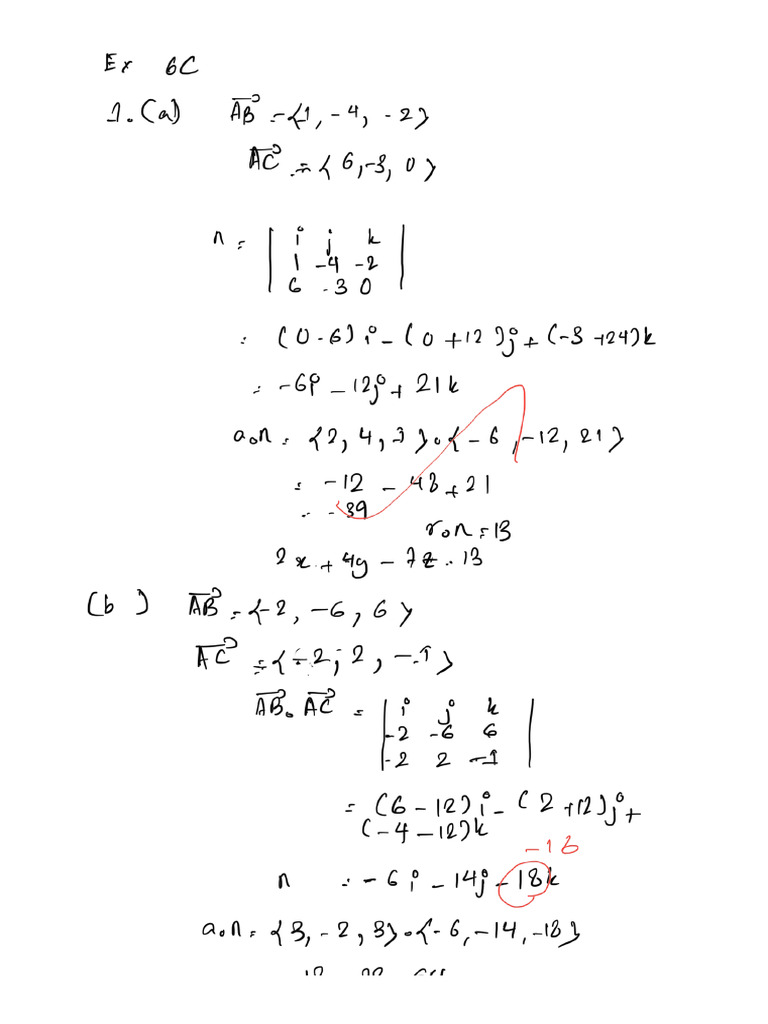 Ex 6C
1.(a) AB = {1, -4, -2}
AC = {6, -3, 0}
n = | i j k |
| 1 -4 -2 |
| 6 -3 0 |
= (0-6)i - (0+12)j + (-3+24)k
= -6i - 12j + 21k
a.n = {2, 4, 3}.{-6, -12, 21}
= -12 - 48 + 21
= -39
r.n = 13
2x + 4y - 7z = 13
(b) AB = {-2, -6, 6}
AC = {-2, 2, -1}
AB. AC = | i j k |
| -2 -6 6 |
| -2 2 -1 |
= (6-12)i - (2+12)j +
(-4-12)k
-16
n = -6i - 14j - 18k
a.n = {3, -2, 3}.{-6, -14, -18}